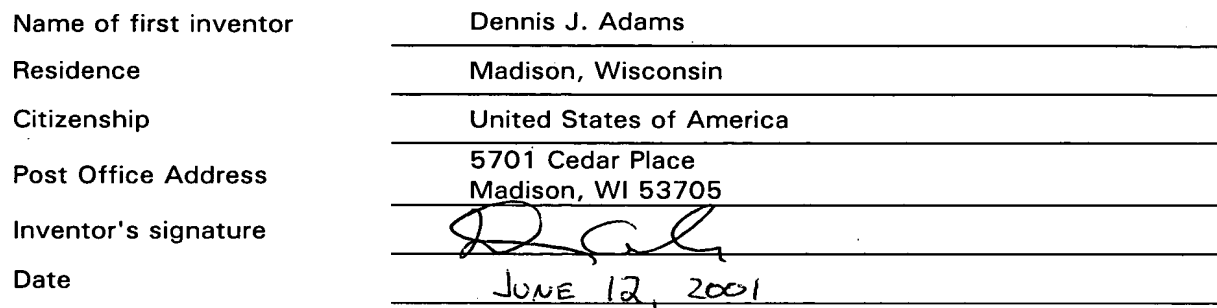 Name of first inventor Dennis J. Adams
Residence Madison, Wisconsin
Citizenship United States of America
Post Office Address 5701 Cedar Place
Madison, WI 53705
Inventor's signature
Date JUNE 12, 2001